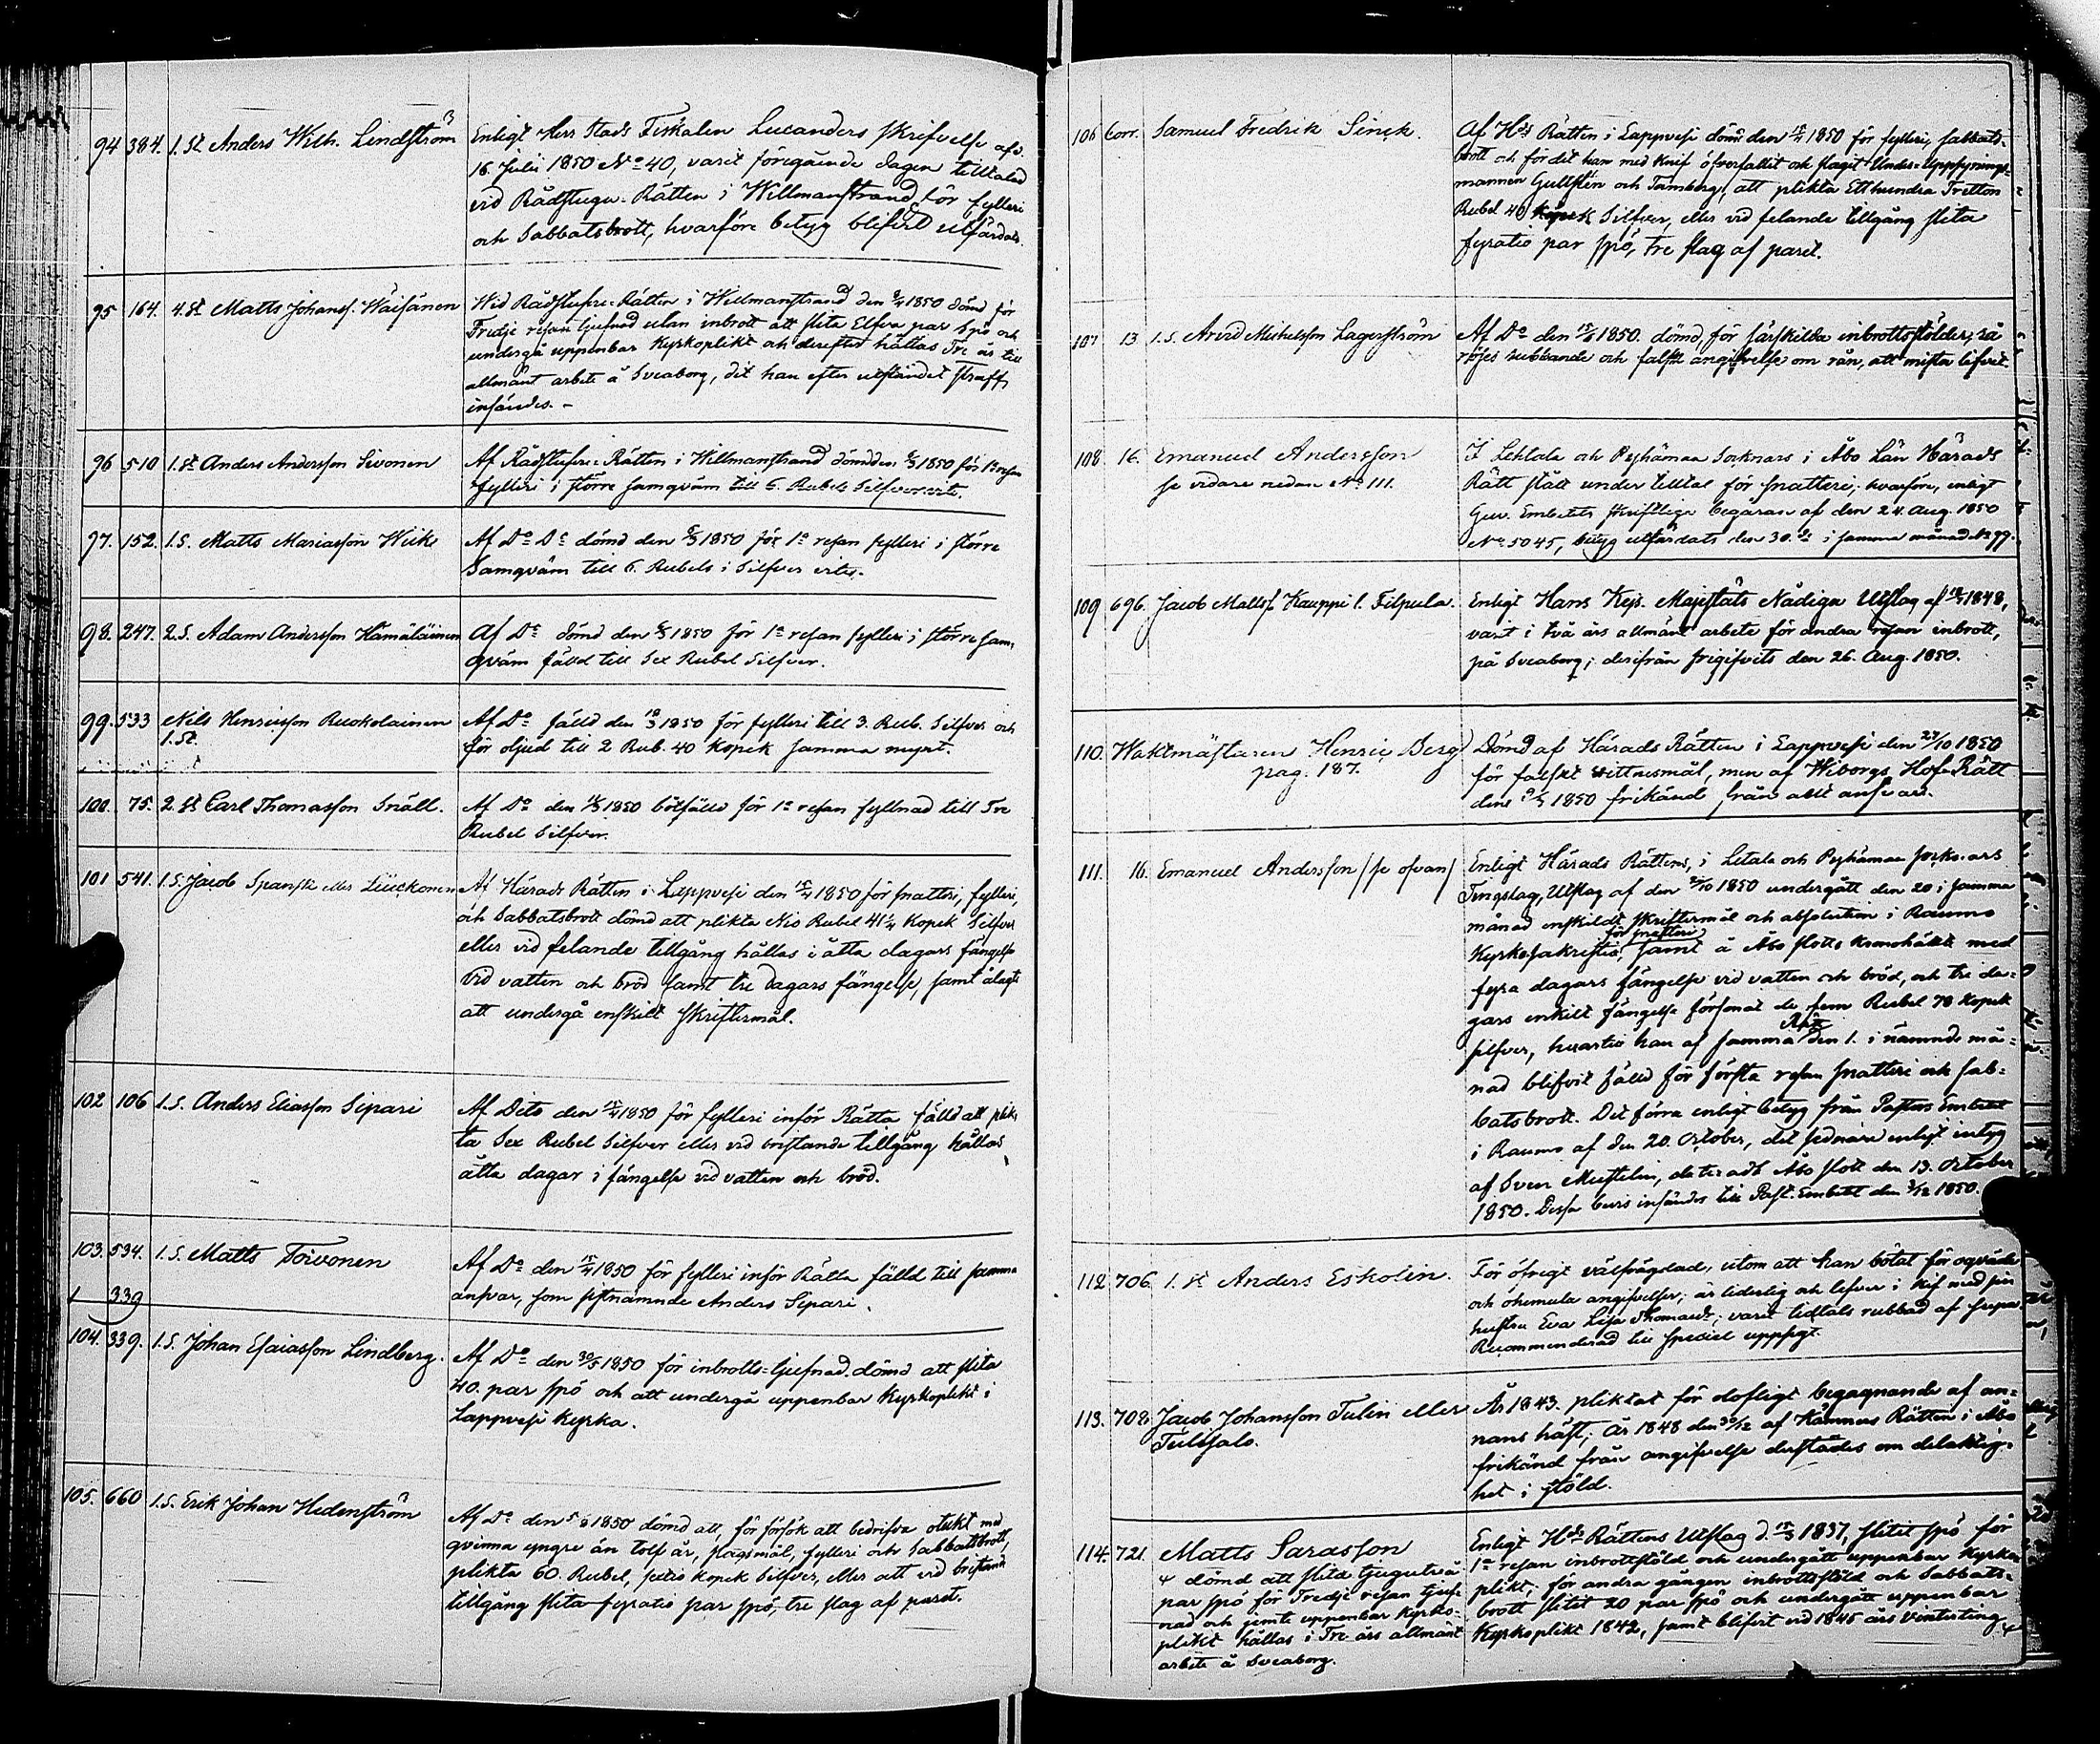 94 384. 1. St Anders Wilh. Lindström
Enligt Herr Stads Fiskalen Lucanders skrifvelse af d.
16. Julii 1850 No 40, varit föregående dagen tilltalad
vid Rådstugu-Rätten i Willmanstrand för fylleri
och Sabbatsbrott, hvarföre betyg blifvit utfärdat.
95 164. 4. St Matts Johanss. Wäisänen
Wid Rådstufvu-Rätten i Willmanstrand den 1850 dömd för
Tredje resan tjufnad utan inbrott att slita Elfva par Spö och
undergå uppenbar Kyrkoplikt och derefter hållas Tre år till
allmänt arbete å Sveaborg, dit han efter utståndet straff
insändes. -
96 510 1. St Anders Andersson Sivonen
Af Rådstufvu-Rätten i Willmanstrand dömd den 1850 för 1a resan
fylleri i större samqväm till 6. Rubels Silfver vite.
97. 152. 1. S. Matts Mariasson Wiike
Af Do Do dömd den 1850 för 1a resan fylleri i större
Samqväm till 6. Rubels i Silfver vite.
98. 247. 2. S. Adam Andersson Hämäläinen
Af Do dömd den 1850 för 1a resan fylleri i större sam-
qväm fälld till Sex Rubel Silfver.
99. 533 Nils Henricsson Ruokolainen
1. St.
Af Do fälld den 1850 för fylleri till 3. Rub. Silfver och
för oljud till 2 Rub. 40 Kopek samma mynt.
100. 75. 2. St Carl Thomasson Snäll.
Af Do den 1850 bötfälld för 1a resan fyllnad till Tre
Rubel Silfver.
101 541. 1. S. Jacob Spansk eller Liuckonen
Af Härads Rätten i Lappvesi den 15/4 1850 för snatteri, fylleri,
och Sabbatsbrott dömd att plikta Nio Rubel 41 1/4 Kopek Silfver
eller vid felande tillgång hållas i åtta dagars fängelse
vid vatten och bröd samt tre dagars fängelse, samt ålagt
att undergå enskilt skriftermål.
102 106 1. S. Anders Eliasson Sipari
Af Dito den 15/4 1850 för fylleri inför Rätta fälld att plik-
ta Sex Rubel Silfver eller vid bristande tillgång hållas
åtta dagar i fängelse vid vatten och bröd.
103. 534. 1. S. Matts Toivonen
Af Do den 15/4 1850 för fylleri inför Rätta fälld till samma
ansvar, som sistnämnde Anders Sipari.
339
104. 339. 1. S. Johan Esaiasson Lindberg.
Af Do den 30/5 1850 för inbrotts-tjufnad dömd att slita
40. par spö och att undergå uppenbar Kyrkoplikt i
Lappvesi Kyrka.
105. 660 1. S. Erik Johan Hedenström
Af Do den 1850 dömd att, för försök att bedrifva otukt med
qvinna yngre än tolf år, slagsmål, fylleri och Sabbatsbrott,
plikta 60. Rubel, sextio kopek Silfver, eller att vid bristande
tillgång slita fyratio par spö, tre slag af paret.
106 Corr. Samuel Fredrik Sinck.
Af Hds Rätten i Lappvesi dömd den 1850 för fylleri, sabbats-
brott och för det han med knif öfverfallit och slagit Under-Uppsynings-
mannen Gullstén och Tamberg, att plikta Etthundra Tretton
Rubel 40 Kopek Silfver, eller vid felande tillgång slita
fyratio par spö, tre slag af paret.
107 13 1. S. Arvid Michelsson Lagerström
Af Do den 1850. dömd, för särskilda inbrottsstölder,
rubbande och falsk angifvelse om rån, att mista lifvet.
108 16. Emanuel Andersson
se vidare nedan No 111.
I Lehtala och Pyhämaa Socknars i Åbo Län Härads
Rätt stått under tilltal för snatteri; hvarföre, enligt
Guv. Embetets skriftliga begäran af den 24. Aug. 1850
No 5045, betyg utfärdats den 30. i samma månad No 99.
109 696. Jacob Mattss. Kauppi l. Filpula.
Enligt Hans Kejs. Majestäts Nådiga Utslag af 1848,
varit i två års allmänt arbete för andra resan inbrott,
på Sveaborg; derifrån frigifvits den 26. Aug. 1850.
110. Waktmästaren Henric Berg
pag. 187.
Dömd af Härads Rätten i Lappvesi den 23/10 1850
för falskt vittnesmål, men af Wiborgs Hof-Rätt
den 1850 frikänd från allt ansvar.
111. 16. Emanuel Andersson /se ofvan/
Enligt Härads Rättens, i Letala och Pyhämaa sockn:ars
Tingslag, Utslag af den 1850 undergått den 20 i samma
månad enskildt skriftermål och absolution i Raumo
Kyrkosakristia, för snatteri samt å Åbo slotts kronohäkte med
fyra dagars fängelse vid vatten och bröd, och tre da-
gars enkilt fängelse försonat de fem Rubel 70 kopek
silfver, hvartill han af samma Rätt den 1. i nämnde må-
nad blifvit fälld för första resan snatteri och sab-
batsbrott. Det förra enligt betyg från Pastors Embetet
i Raumo af den 20. October, det sednare enligt intyg
af Sven Mustelin, dateradt Åbo slott den 13. October
1850. Dessa bevis insändes till Past. Embetet den 1850.
112 706 1. St Anders Eskolin.
För öfrigt välfrägdad, utom att han bötat för oqväde
och ohemula angifvelser; är liderlig och lefver i kif med sin
hustru Eva Lisa Thomasdr; varit tidtals rubbad af
Recommenderad till speciel uppsigt.
113. 708. Jacob Johansson Tulin eller
Tulisalo.
År 1843. pliktat för olofligt begagnande af an-
nans häst; År 1848 den 30/12 af Kämners Rätten i Åbo
frikänd från angifvelse derstädes om delaktig-
het i stöld.
114. 721. Matts Sarasson
dömd att slita tjugutvå
par spö för Tredje resan tjuf-
nad och jemte uppenbar Kyrko-
plikt hållas i Tre års allmänt
arbete å Sveaborg.
Enligt Hds Rättens Utslag d. 1837, slitit spö för
1a resan inbrottsstöld och undergått uppenbar Kyrko-
plikt; för andra gången inbrottsstöld och Sabbats-
brott slitit 20 par spö och undergått uppenbar
Kyrkoplikt 1842, samt blifvit vid 1845 års Vinterting